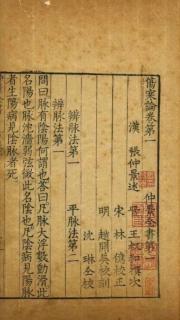 傷寒論卷第一 仲景全書第一
漢 張仲景述 王叔和撰次
宋 林億校正
明 趙開美校刻
沈琳仝校
辨脉法第一 平脉法第二
辨脉法第一
問曰脉有陰陽何謂也荅曰凡脉大浮數動滑此
名陽也脉沈濇弱弦微此名陰也凡陰病見陽脉
者生陽病見陰脉者死